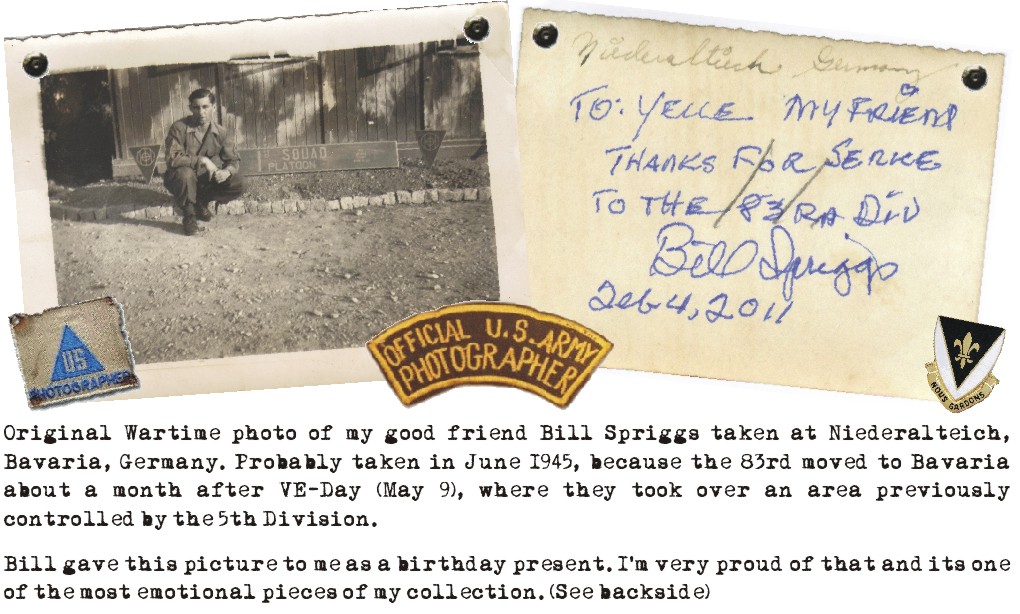 SQUAD
PLATOON
Niederaltiech Germany
TO: YELLE MY FRIEND
THANKS FOR SERVCE
TO THE 83RD DIV
Bill Spriggs
Feb 4, 2011
US
PHOTOGRAPHER
OFFICIAL U.S. ARMY
PHOTOGRAPHER
NOUS GARDONS
Original Wartime photo of my good friend Bill Spriggs taken at Niederalteich,
Bavaria, Germany. Probably taken in June 1945, because the 83rd moved to Bavaria
about a month after VE-Day (May 9), where they took over an area previously
controlled by the 5th Division.
Bill gave this picture to me as a birthday present. I'm very proud of that and its one
of the most emotional pieces of my collection. (See backside)